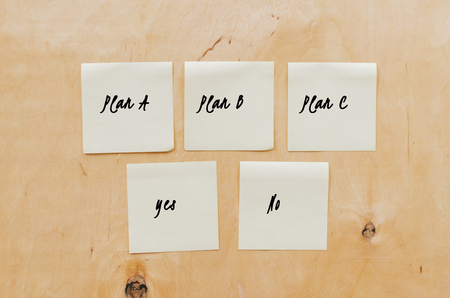 Plan A
Plan B
Plan C
yes
No